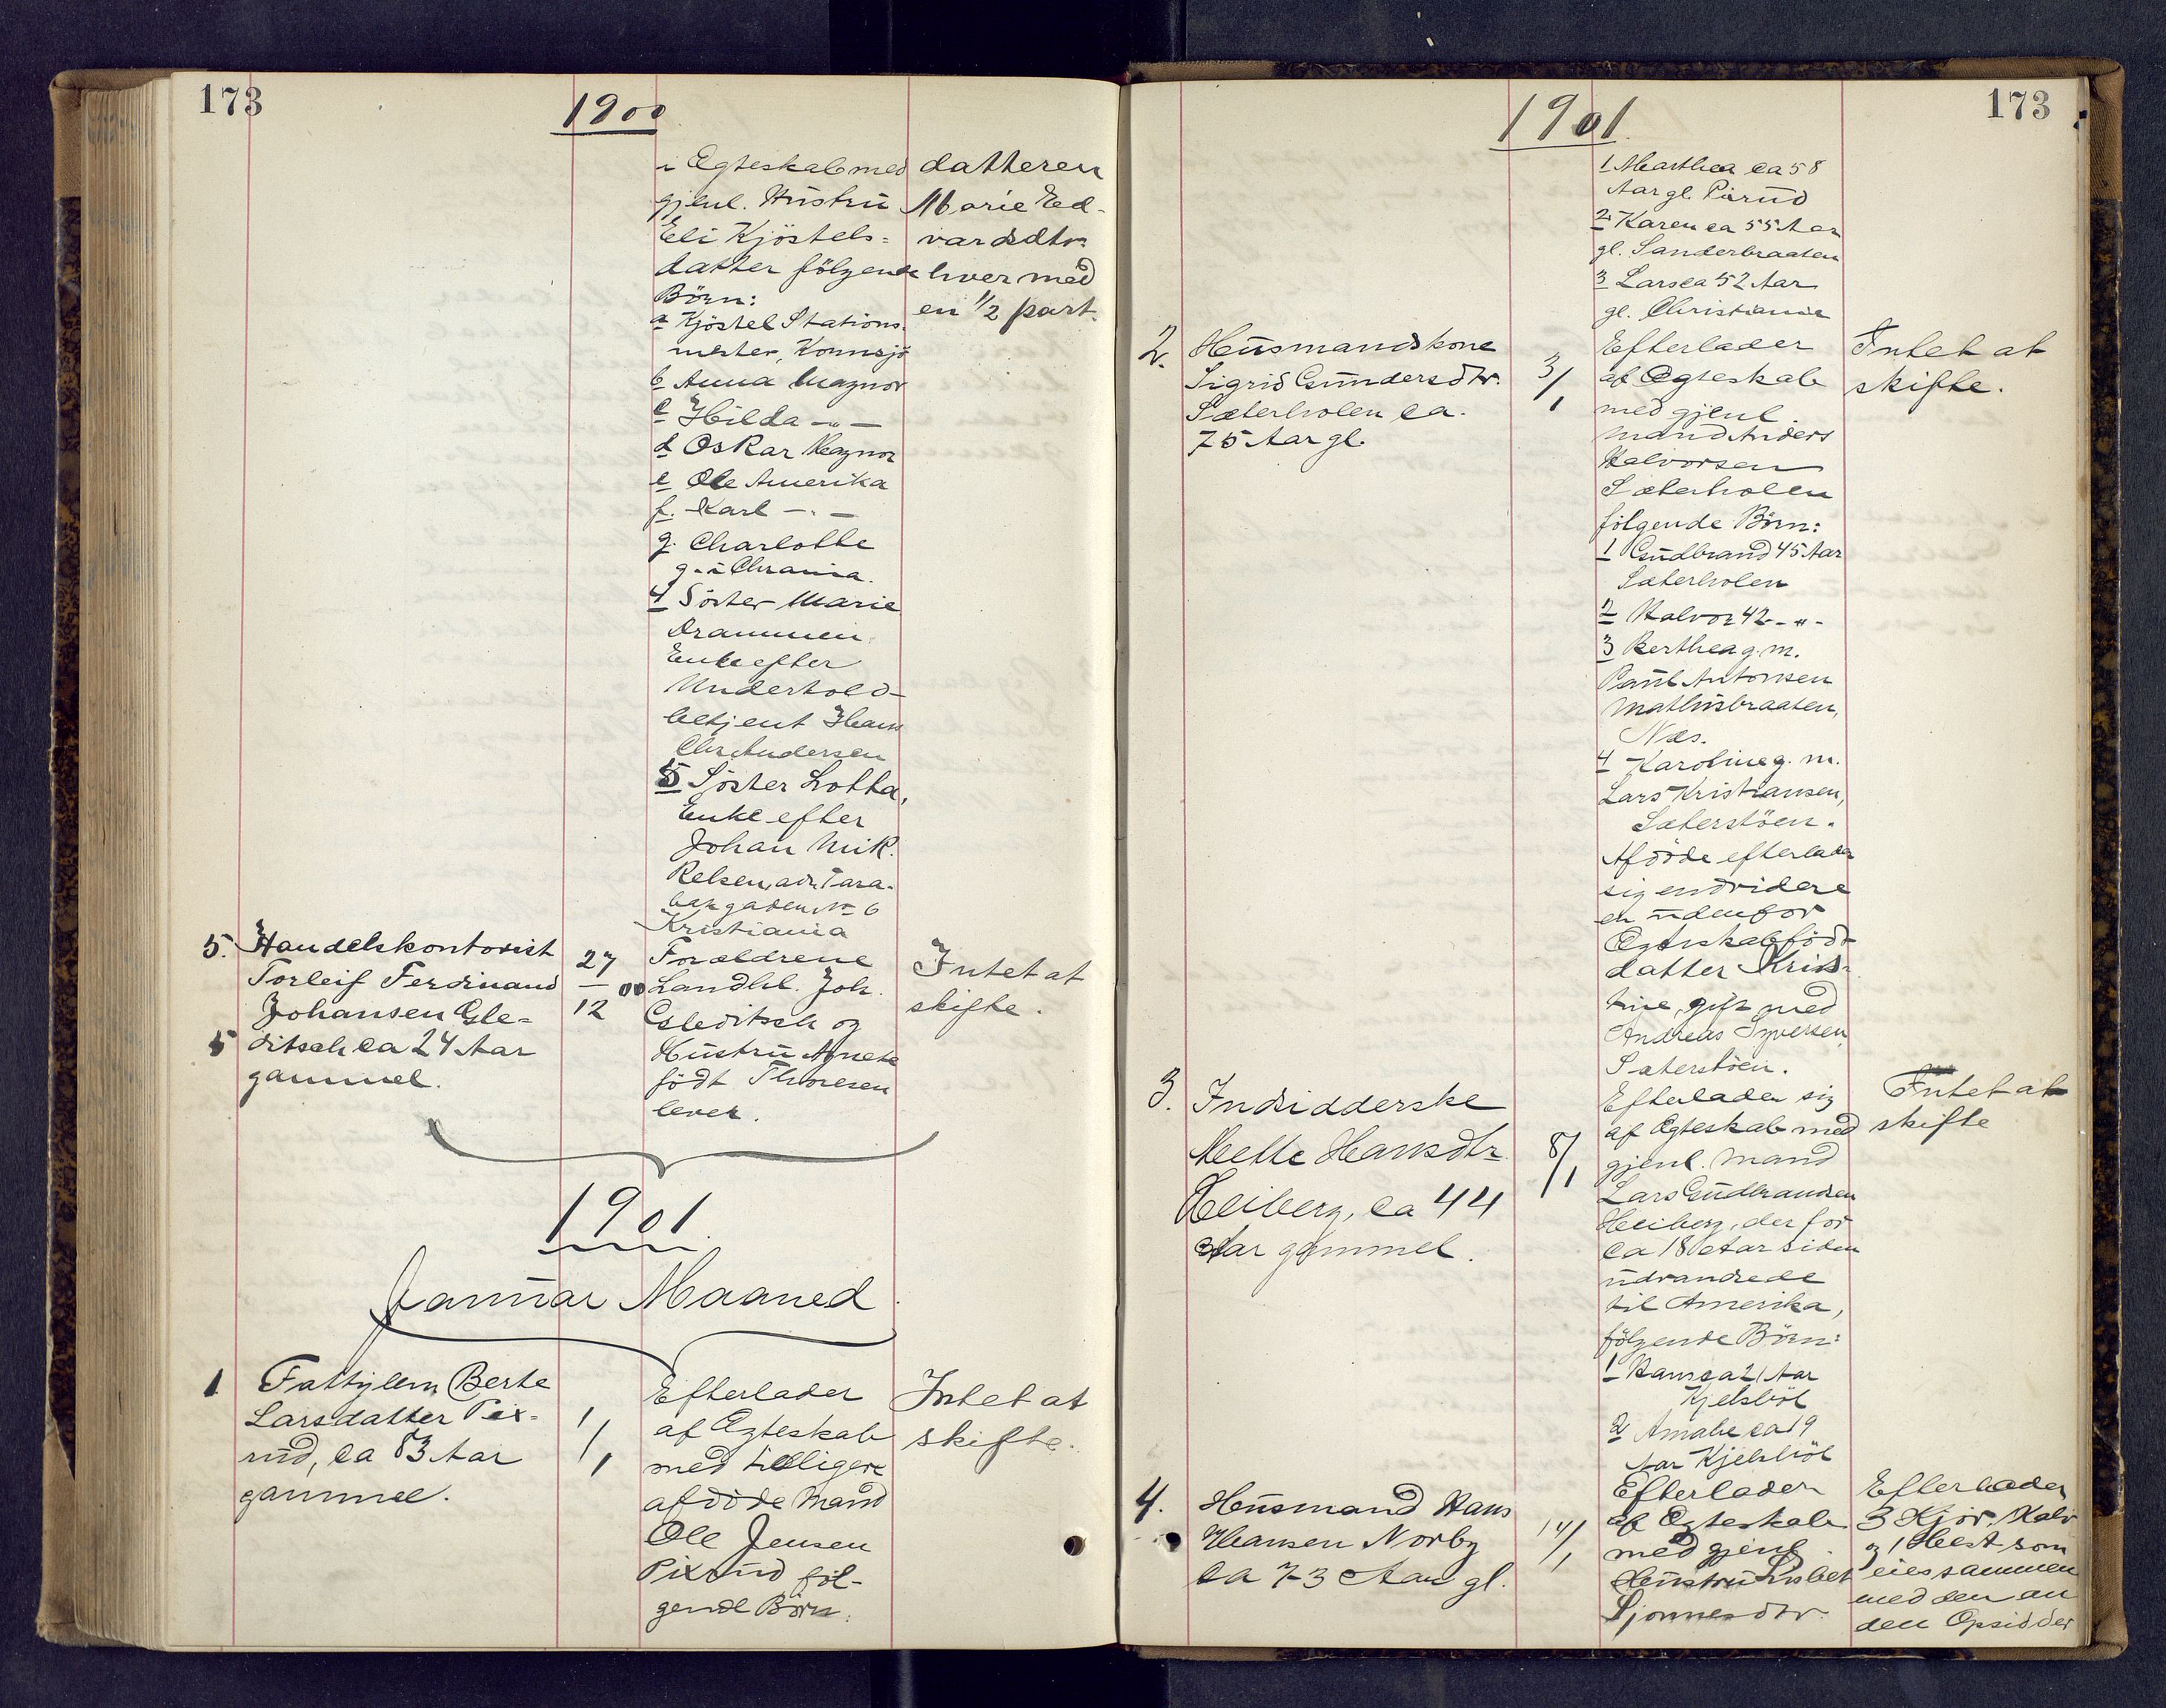 173
1900
i Egteskab med
gjenl. Hustru
Eli Kjöstels-
datter följende
Börn:
a Kjöstel Stations-
mester, Kornsjö
b Anna Magnor
c Hilda -"-
d Oskar Magnor
e Ole Amerika
f. Karl -"-
g. Charlotte
g. i Chrania.
4 Söster Marie
Drammen
Enke efter
Underfold-
betjent Hans
Chr. Andersen
5 Söster Lotta,
Enke efter
Johan Mik.
Kelsen, adr. Tara-
gaden No 6
Kristiania
datteren
Marie Ed-
vardsdtr.
hver med
en 1/2 part.
5. Handelskontorist
Torleif Ferdinand
Johansen Gle-
ditsch ca 24 Aar
gammel.
27
—
12
00
Forældrene
Landhl. Joh.
Gleditsch og
Hustru Agnete
födt Thoresen
lever.
Intet at
skifte.
1901
Januar Maaned
1 Fattiglem Berte
Larsdatter Pix-
rud, ca 83 Aar
gammel.
1/1
Efterlader
af Egteskab
med tidligere
afdöde Mand
Ole Jensen
Pixrud föl-
gende Börn:
Intet at
skifte.
1901
173
1 Marthea ca 58
Aar gl. Pixrud
2 Karen ca 55 Aar
gl. Sanderbraaten
3 Lars ca 52 Aar
gl. Christiania
2. Husmandskone
Sigrid Gundersdtr.
Sæterholen ca.
75 Aar gl.
3/1
Efterlader
af Egteskab
med gjenl.
Mand Anders
Halvorsen
Sæterholen
fölgende Börn:
1 Gudbrand 45 Aar
Sæterholen
2 Halvor 42 -"-
3 Berthea g. m.
Paul Antonsen
Mathusbraaten,
Næs.
4 Karoline g. m.
Lars Kristiansen,
Sæterstöen.
Afdöde efterlader
sig endvidere
en udenfor
Egteskab födt
datter Kris-
tine, gift med
Andreas Syversen
Sæterstöen.
Intet at
skifte.
3. Indsidderske
Mette Hansdtr.
Heiberg, ca 44
Aar gammel.
8/1
Efterlader sig
af Egteskab med
gjenl. Mand
Lars Gudbrandsen
Heiberg, der for
ca 18 Aar siden
udvandrede
til Amerika,
fölgende Börn:
1 Hans ca 21 Aar
Kjelsböl
2 Amalie ca 19
Aar Kjelsböl
Intet at
skifte
4. Husmand Hans
Hansen Norby
ca 73 Aar gl.
14/1
Efterlader
af Egteskab
med gjenl.
Hustru Lisbet
Sjonnesdtr.
Efterlader
3 Kjör, Kalv
og 1 Hest som
eies sammen
med den an
den Opsidder